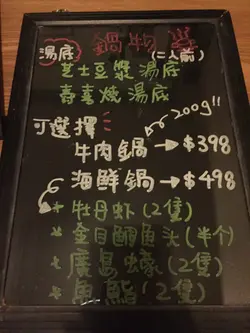 湯底 鍋物選
(二人前)
芝士豆漿湯底
壽喜燒湯底
200g!!
可選擇
牛肉鍋→$398
海鮮鍋→$498
* 牡丹虾(2隻)
* 金目鯛魚头(半个)
* 廣島蠔(2隻)
* 魚鮨(2隻)